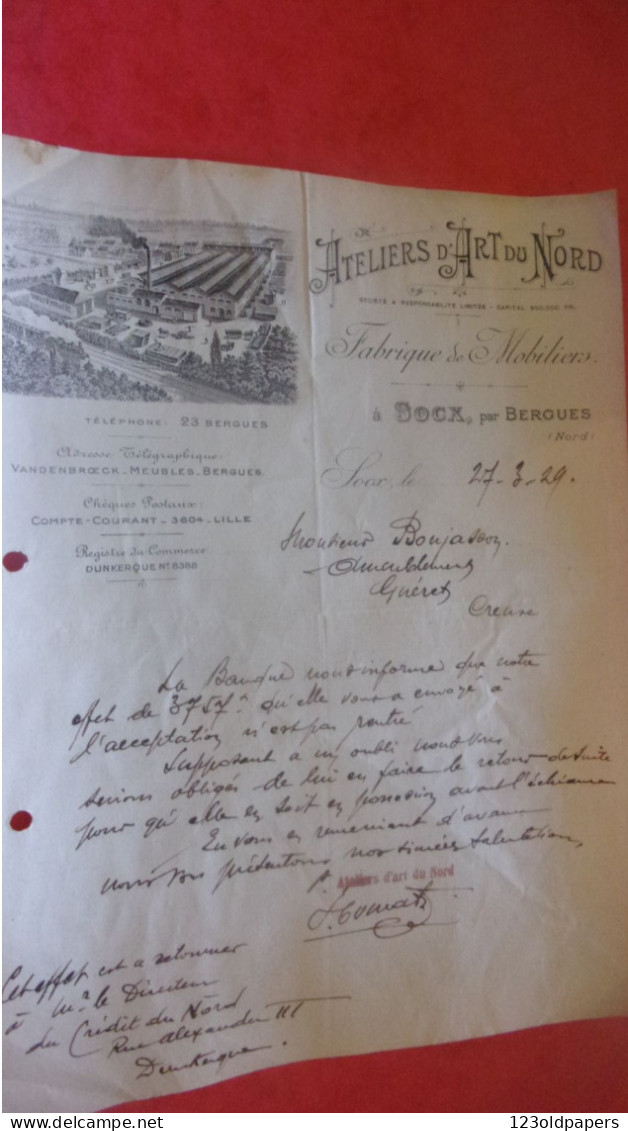 ATELIERS D'ART DU NORD
SOCIÉTÉ A RESPONSABILITÉ LIMITÉE - CAPITAL 600.000 FR.
Fabrique de Mobiliers.
à SOCX, par BERGUES
(Nord)
TÉLÉPHONE: 23 BERGUES
Adresse Télégraphique:
VANDENBRŒCK_MEUBLES_BERGUES.
Chèques Postaux:
COMPTE-COURANT_3604_LILLE
Registre du Commerce
DUNKERQUE Nº 8388
Socx, le 27-3-29.
Monsieur Bonjasson.
Ameublement
Guéret
Creuse
La Banque nous informe que notre
effet de 3757 qu'elle vous a envoyé à
l'acceptation n'est pas rentré
Supposant a un oubli nous vous
serions obligés de lui en faire le retour de suite
pour qu'elle en soit en possession avant l'échéance
En vous en remerciant d'avance
nous vous présentons nos sincères salutations
Ateliers d'art du Nord
Cet effet est a retourner
à Mr le Directeur
du Crédit du Nord
Rue Alexandre III
Dunkerque.
123oldpapers